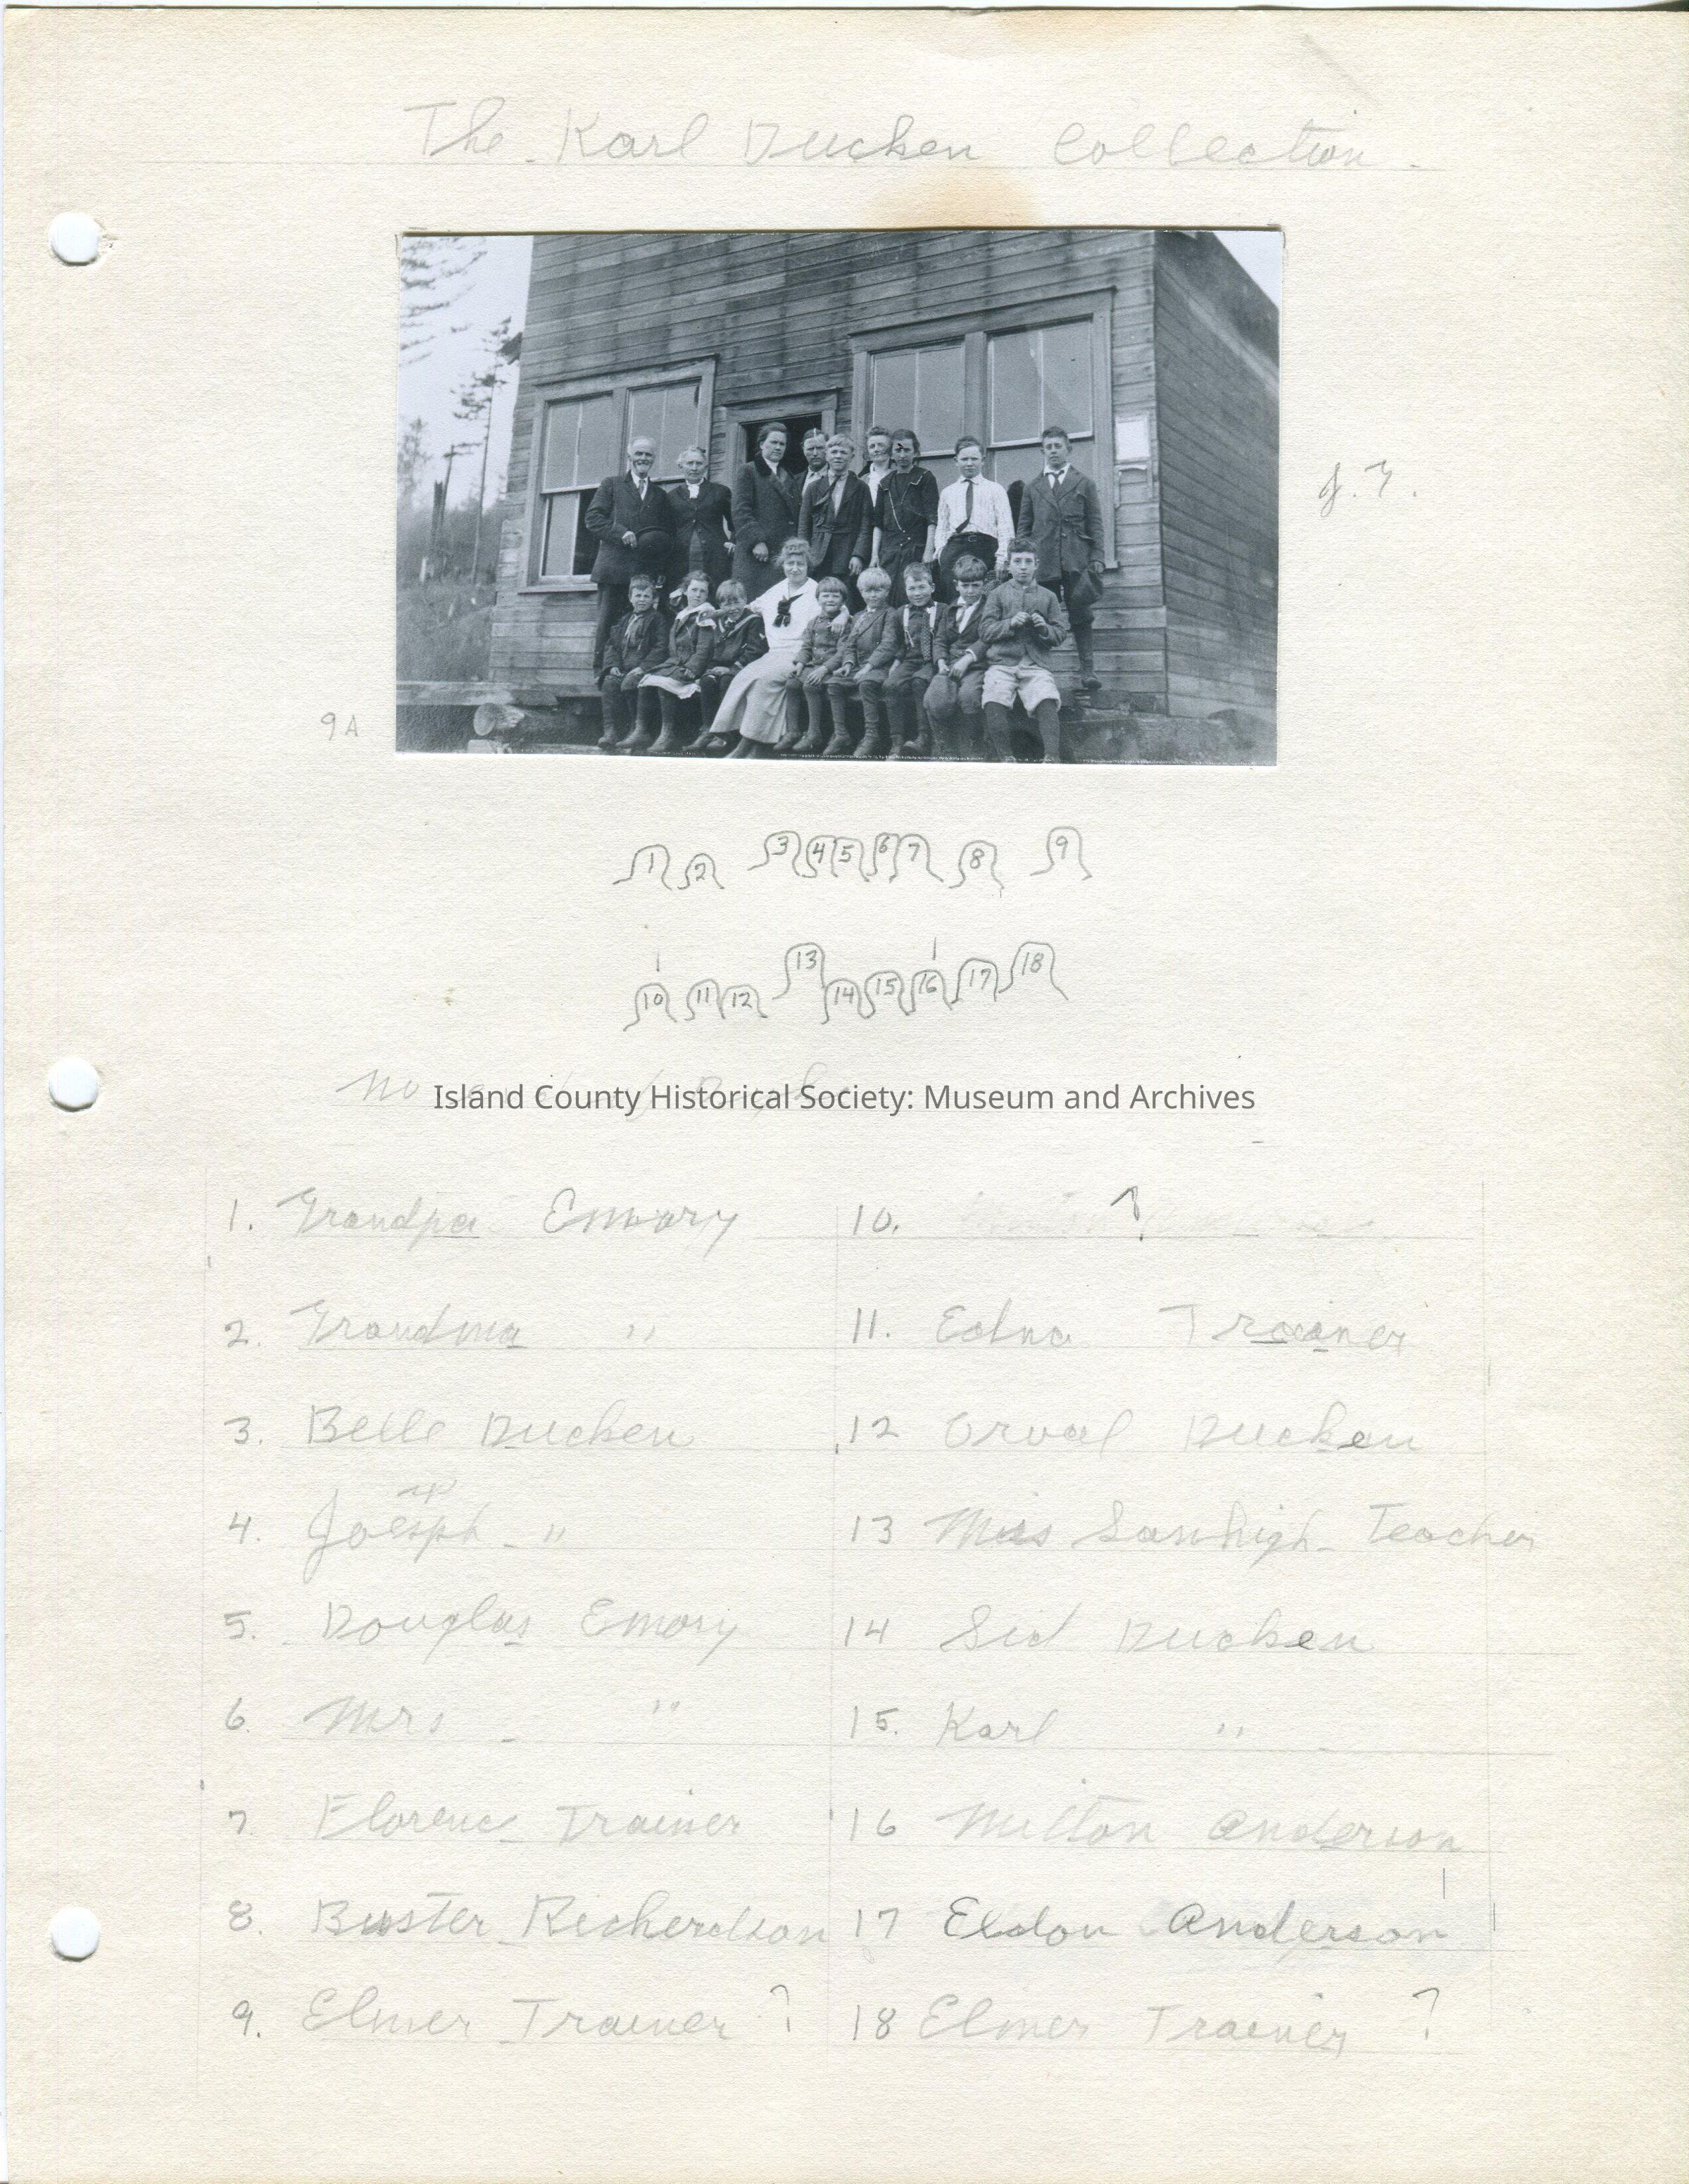 The Karl Ducken Collection
J. T.
9A
1 2 3 4 5 6 7 8 9
10 11 12 13 14 15 16 17 18
No
Island County Historical Society: Museum and Archives
1. Grandpa Emmory
10. ?
2. Grandma "
11. Edna Trainer
3. Belle Ducken
12 Orval Ducken
4. Joesph "
13 Miss Teacher
5. Douglas Emory
14 Sid Ducken
6. Mrs "
15. Karl "
7. Florence Trainer
16 Milton Anderson
8. Buster Richerdson
17 Eldon Anderson
9. Elmer Trainer ?
18 Elmer Trainer ?